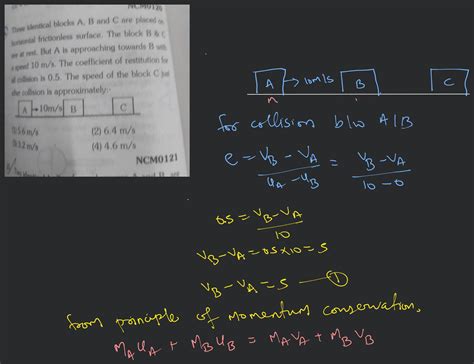 NCM0120
Three identical blocks A, B and C are placed on
horizontal frictionless surface. The block B & C
are at rest. But A is approaching towards B with
a speed 10 m/s. The coefficient of restitution for
all collision is 0.5. The speed of the block C just
the collision is approximately:-
A →10m/s B C
5.6 m/s (2) 6.4 m/s
3.2 m/s (4) 4.6 m/s
NCM0121
A → 10m/s B C
for collision b/w A/B
e = (V_B - V_A)/(u_A - u_B) = (V_B - V_A)/(10 - 0)
0.5 = (V_B - V_A)/10
V_B - V_A = 0.5 × 10 = 5
V_B - V_A = 5 — ①
from principle of momentum conservation,
M_A u_A + M_B u_B = M_A V_A + M_B V_B